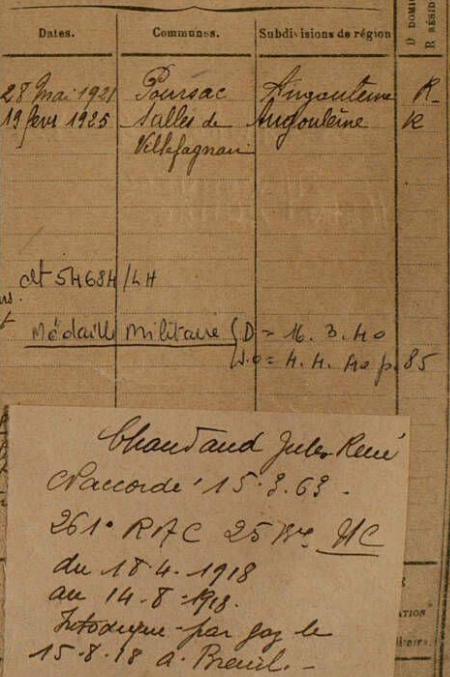 Dates. Communes. Subdivisions de région
D DOMI
R RÉSID
28 Mai 1921 Poursac Angoulème R
19 fevr 1925 Salles de Angoulème R
Villefagnan
54684/LH
Médaille Militaire D = 16.3.40
J.O = 4.4.40 p. 85
Jules René
15.3.63 -
261e RAC 25 Bie UC
du 18-4-1918
au 14-8-1918.
Intoxiqué par gaz le
15-8-18 a Breuil. -
ATION